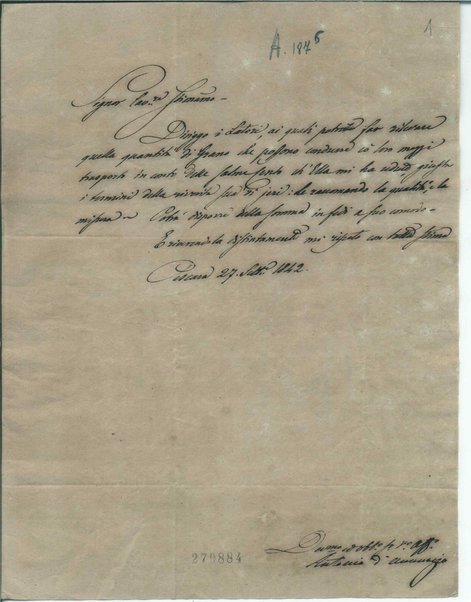 1
A. 1876
Signor Cav.re Stimatmo
Dirigo i Latori, ai quali potrete far ricevere
quella quantità di Grano che possono condurre coi loro mezzi
trasporti in conto delle salme cento ch'Ella mi ha ceduto giusta
i termini della di jeri: le raccomando la qualità, e la
misura Potrà disporre della somma in fedi a suo comodo
E riverendola distintamente mi ripeto con tutta stima
Pescara 27. Sett.e 1842.
279884
Dmo ed obb. affo
Antonio d'Annunzio